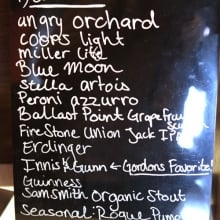 angry orchard
coors light
miller lite
Blue Moon
Stella artois
Peroni azzurro
Ballast Point Grapefruit
FireStone Union Jack IPA
Erdinger
Innis & Gunn ← Gordons Favorite!
Guinness
Sam Smith Organic Stout
Seasonal: Rogue